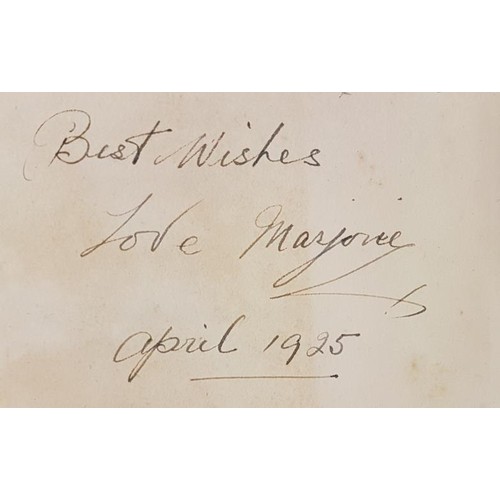 Best Wishes
Love Marjorie
April 1925